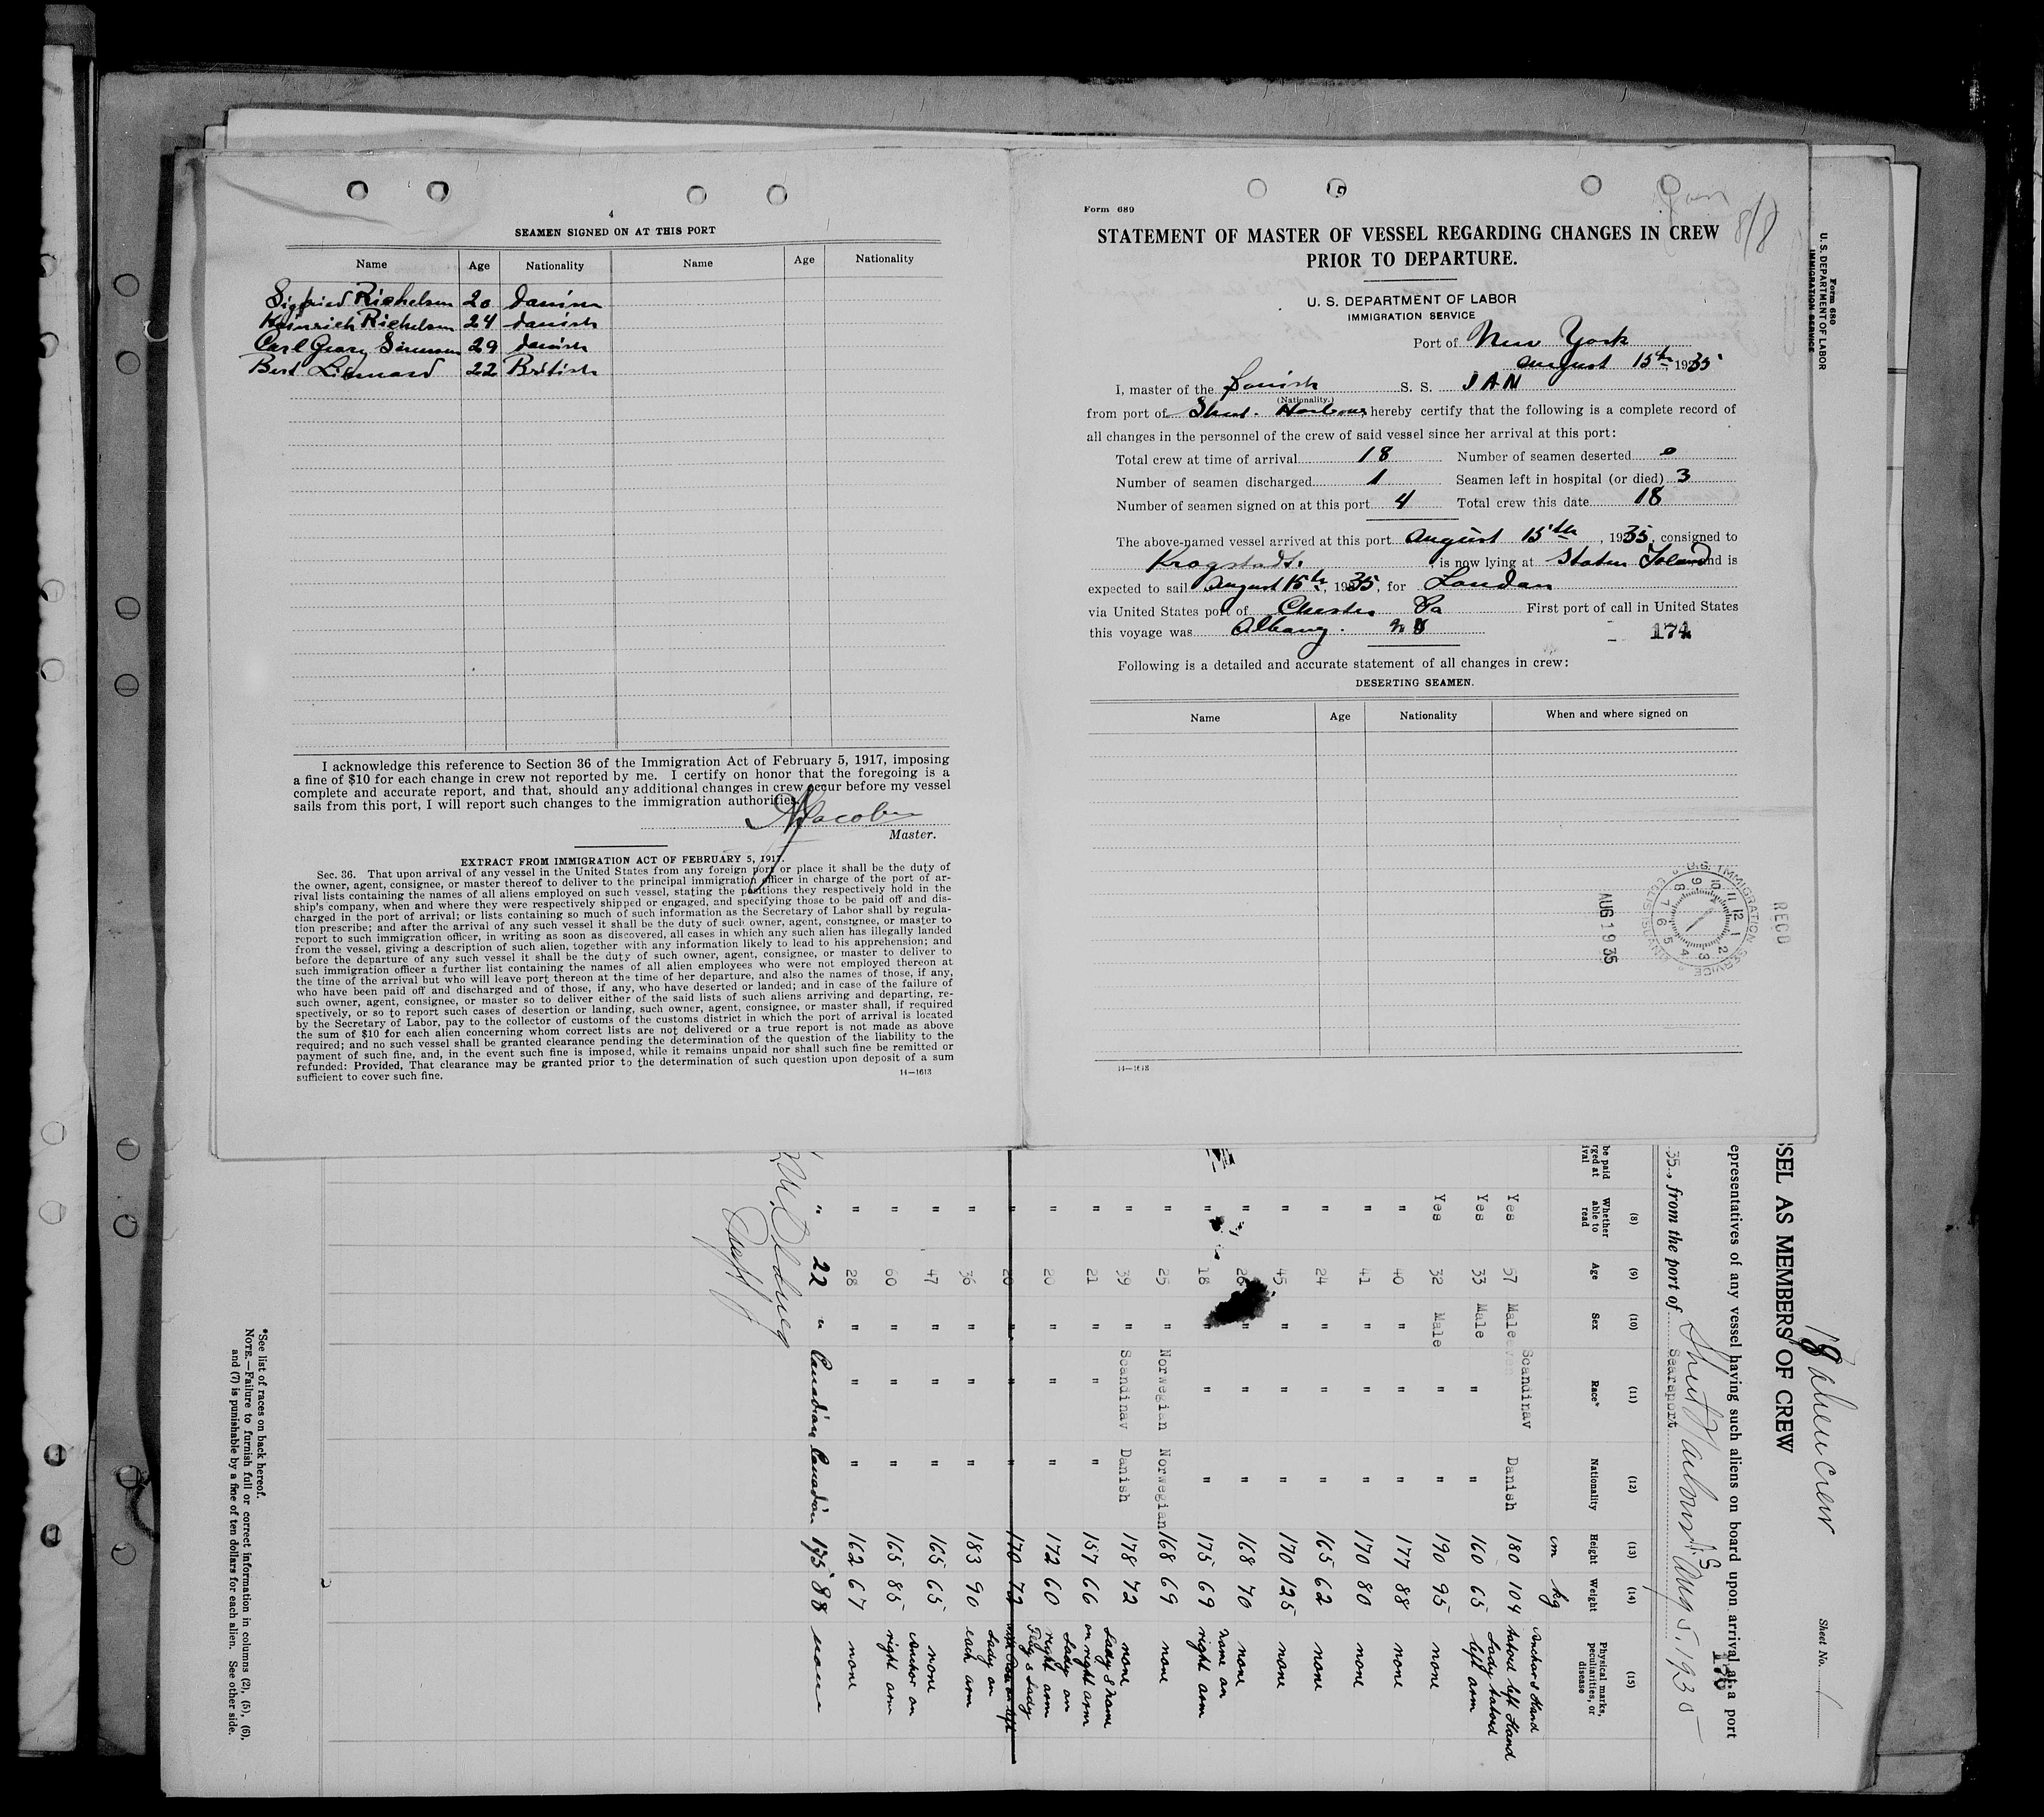 4
SEAMEN SIGNED ON AT THIS PORT
Name Age Nationality Name Age Nationality
Sigfried Richelsen 20 Danish
Heinrich Richelsen 24 danish
Carl Georg Sørensen 29 danish
Bert 22 British
I acknowledge this reference to Section 36 of the Immigration Act of February 5, 1917, imposing
a fine of $10 for each change in crew not reported by me. I certify on honor that the foregoing is a
complete and accurate report, and that, should any additional changes in crew occur before my vessel
sails from this port, I will report such changes to the immigration authorities.
Master.
EXTRACT FROM IMMIGRATION ACT OF FEBRUARY 5, 1917.
Sec. 36. That upon arrival of any vessel in the United States from any foreign port or place it shall be the duty of
the owner, agent, consignee, or master thereof to deliver to the principal immigration officer in charge of the port of ar-
rival lists containing the names of all aliens employed on such vessel, stating the positions they respectively hold in the
ship's company, when and where they were respectively shipped or engaged, and specifying those to be paid off and dis-
charged in the port of arrival; or lists containing so much of such information as the Secretary of Labor shall by regula-
tion prescribe; and after the arrival of any such vessel it shall be the duty of such owner, agent, consignee, or master to
report to such immigration officer, in writing as soon as discovered, all cases in which any such alien has illegally landed
from the vessel, giving a description of such alien, together with any information likely to lead to his apprehension; and
before the departure of any such vessel it shall be the duty of such owner, agent, consignee, or master to deliver to
such immigration officer a further list containing the names of all alien employees who were not employed thereon at
the time of the arrival but who will leave port thereon at the time of her departure, and also the names of those, if any,
who have been paid off and discharged and of those, if any, who have deserted or landed; and in case of the failure of
such owner, agent, consignee, or master so to deliver either of the said lists of such aliens arriving and departing, re-
spectively, or so to report such cases of desertion or landing, such owner, agent, consignee, or master shall, if required
by the Secretary of Labor, pay to the collector of customs of the customs district in which the port of arrival is located
the sum of $10 for each alien concerning whom correct lists are not delivered or a true report is not made as above
required; and no such vessel shall be granted clearance pending the determination of the question of the liability to the
payment of such fine, and, in the event such fine is imposed, while it remains unpaid nor shall such fine be remitted or
refunded: Provided, That clearance may be granted prior to the determination of such question upon deposit of a sum
sufficient to cover such fine.
14—1613
Form 689
8/8
STATEMENT OF MASTER OF VESSEL REGARDING CHANGES IN CREW
PRIOR TO DEPARTURE.
U. S. DEPARTMENT OF LABOR
IMMIGRATION SERVICE
Port of New York
August 15th, 1935
I, master of the Danish S. S. JAN
(Nationality.)
from port of Sheet Harbour hereby certify that the following is a complete record of
all changes in the personnel of the crew of said vessel since her arrival at this port:
Total crew at time of arrival 18 Number of seamen deserted 0
Number of seamen discharged 1 Seamen left in hospital (or died) 3
Number of seamen signed on at this port 4 Total crew this date 18
The above-named vessel arrived at this port August 15th, 1935, consigned to
Krogstads. is now lying at Staten Island and is
expected to sail August 15th, 1935, for London
via United States port of Chester Pa First port of call in United States
this voyage was Albany. N Y
174
Following is a detailed and accurate statement of all changes in crew:
DESERTING SEAMEN.
Name Age Nationality When and where signed on
RECD
U.S. IMMIGRATION SERVICE ELLIS ISLAND
AUG 19 35
14—1613
Form 680
U. S. DEPARTMENT OF LABOR
IMMIGRATION SERVICE
18 alien Crew
Sheet No. 1
SSEL AS MEMBERS OF CREW
epresentatives of any vessel having such aliens on board upon arrival at a port
176
35., from the port of Searsport
Sheet Harbour N.S. Aug 5, 1935
be paid
rged at
ival
(8) Whether able to read
(9) Age
(10) Sex
(11) Race*
(12) Nationality
(13) Height cm
(14) Weight kg
(15) Physical marks, peculiarities, or disease
Yes 57 Male Scandinav Danish 180 104 Anchor & Hand tatood left Hand
Yes 33 Male " " 160 65 Lady tatood left arm
Yes 32 Male " " 190 95 none
" 40 " " 177 88 none
" 41 " " 170 80 none
" 24 " " 165 62 none
" 45 " " 170 125 none
26 " " 168 70 none
" 18 " " " 175 69 name on right arm
" 25 " Norwegian Norwegian 168 69 none
" 39 " Scandinav Danish 178 72 none
" 21 " " " 157 66 Lady & name on right arm
" 20 " " " 172 60 Lady on right arm
" 20 " " " 170 72
" 36 " " " 183 90 Lady on each arm
" 47 " " " 165 65 none
" 60 " " " 165 85 Anchor on right arm
" 28 " " " 162 67 none
" 22 " Canadian Canadian 175 88 none
*See list of races on back hereof.
NOTE.—Failure to furnish full or correct information in columns (2), (5), (6),
and (7) is punishable by a fine of ten dollars for each alien. See other side.